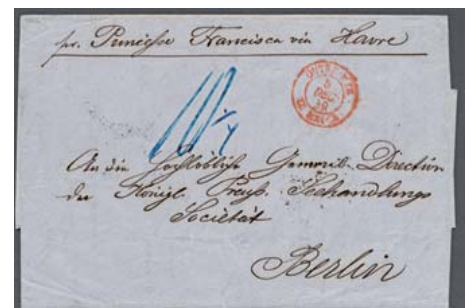 pr. Princesse Francisca via Havre
An die hochlöbliche General-Direction
der Königl. Preuss. Seehandlungs
Societät
Berlin